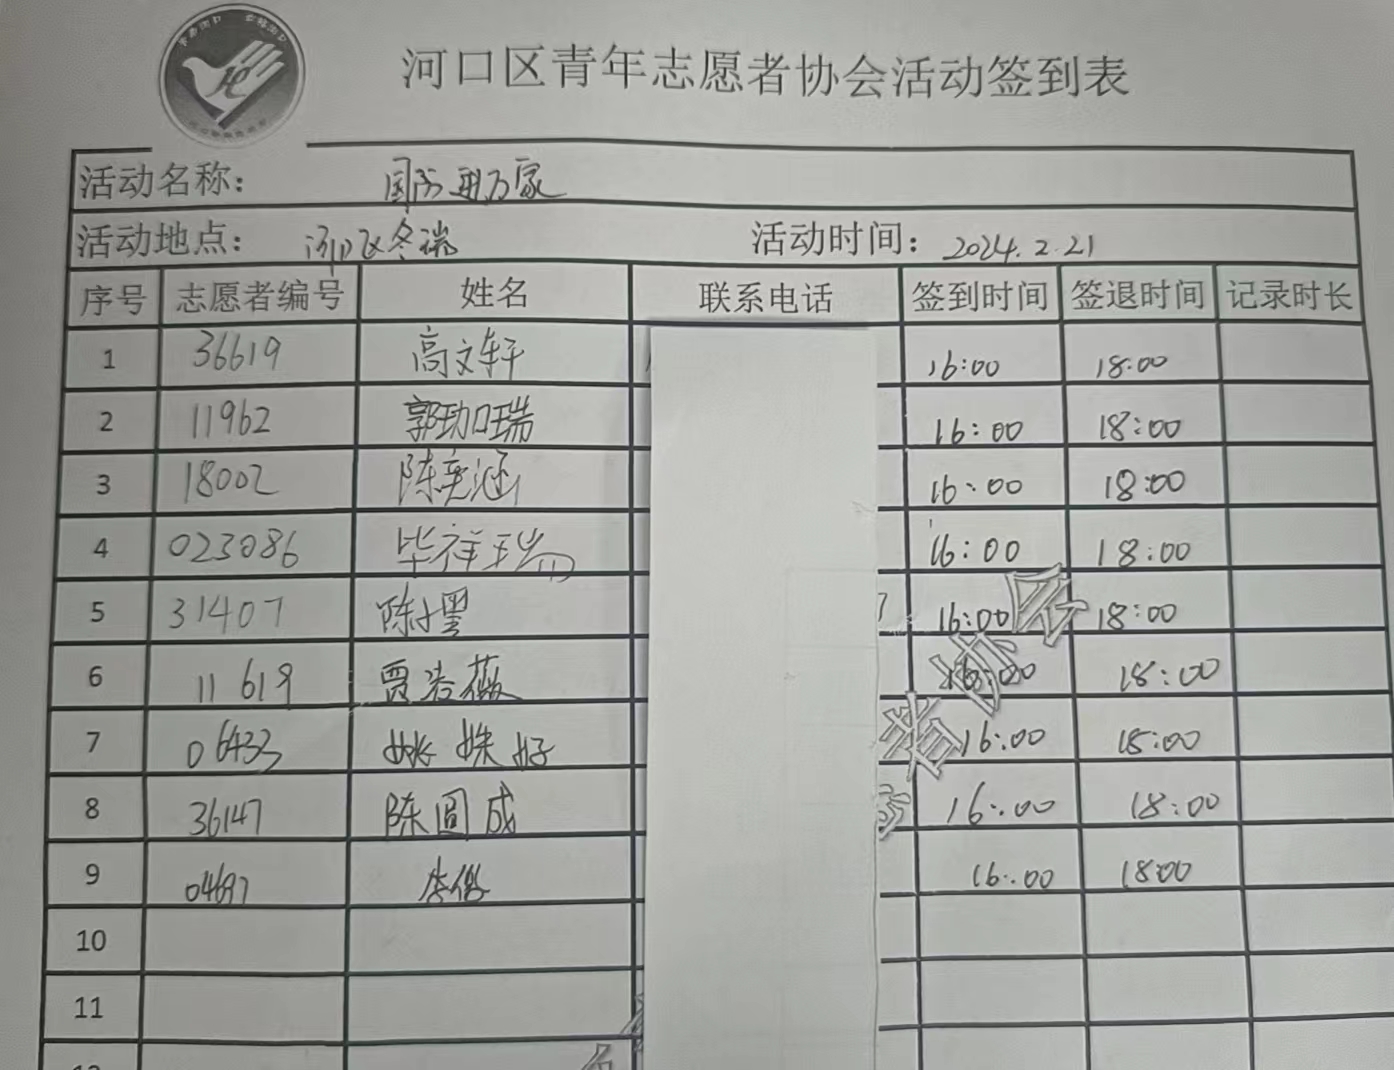 河口区青年志愿者协会活动签到表
活动名称： 国防进万家
活动地点： 河口区冬瑞 活动时间： 2024.2.21
序号 志愿者编号 姓名 联系电话 签到时间 签退时间 记录时长
1 36619 高文轩 16:00 18:00
2 11962 郭劲瑞 16:00 18:00
3 18002 陈奕涵 16:00 18:00
4 023086 毕祥瑞 16:00 18:00
5 31407 陈墨 16:00 18:00
6 11619 贾若薇 16:00 18:00
7 06433 姚姝好 16:00 18:00
8 36147 陈圆成 16:00 18:00
9 04697 16:00 18:00
10
11
者协会